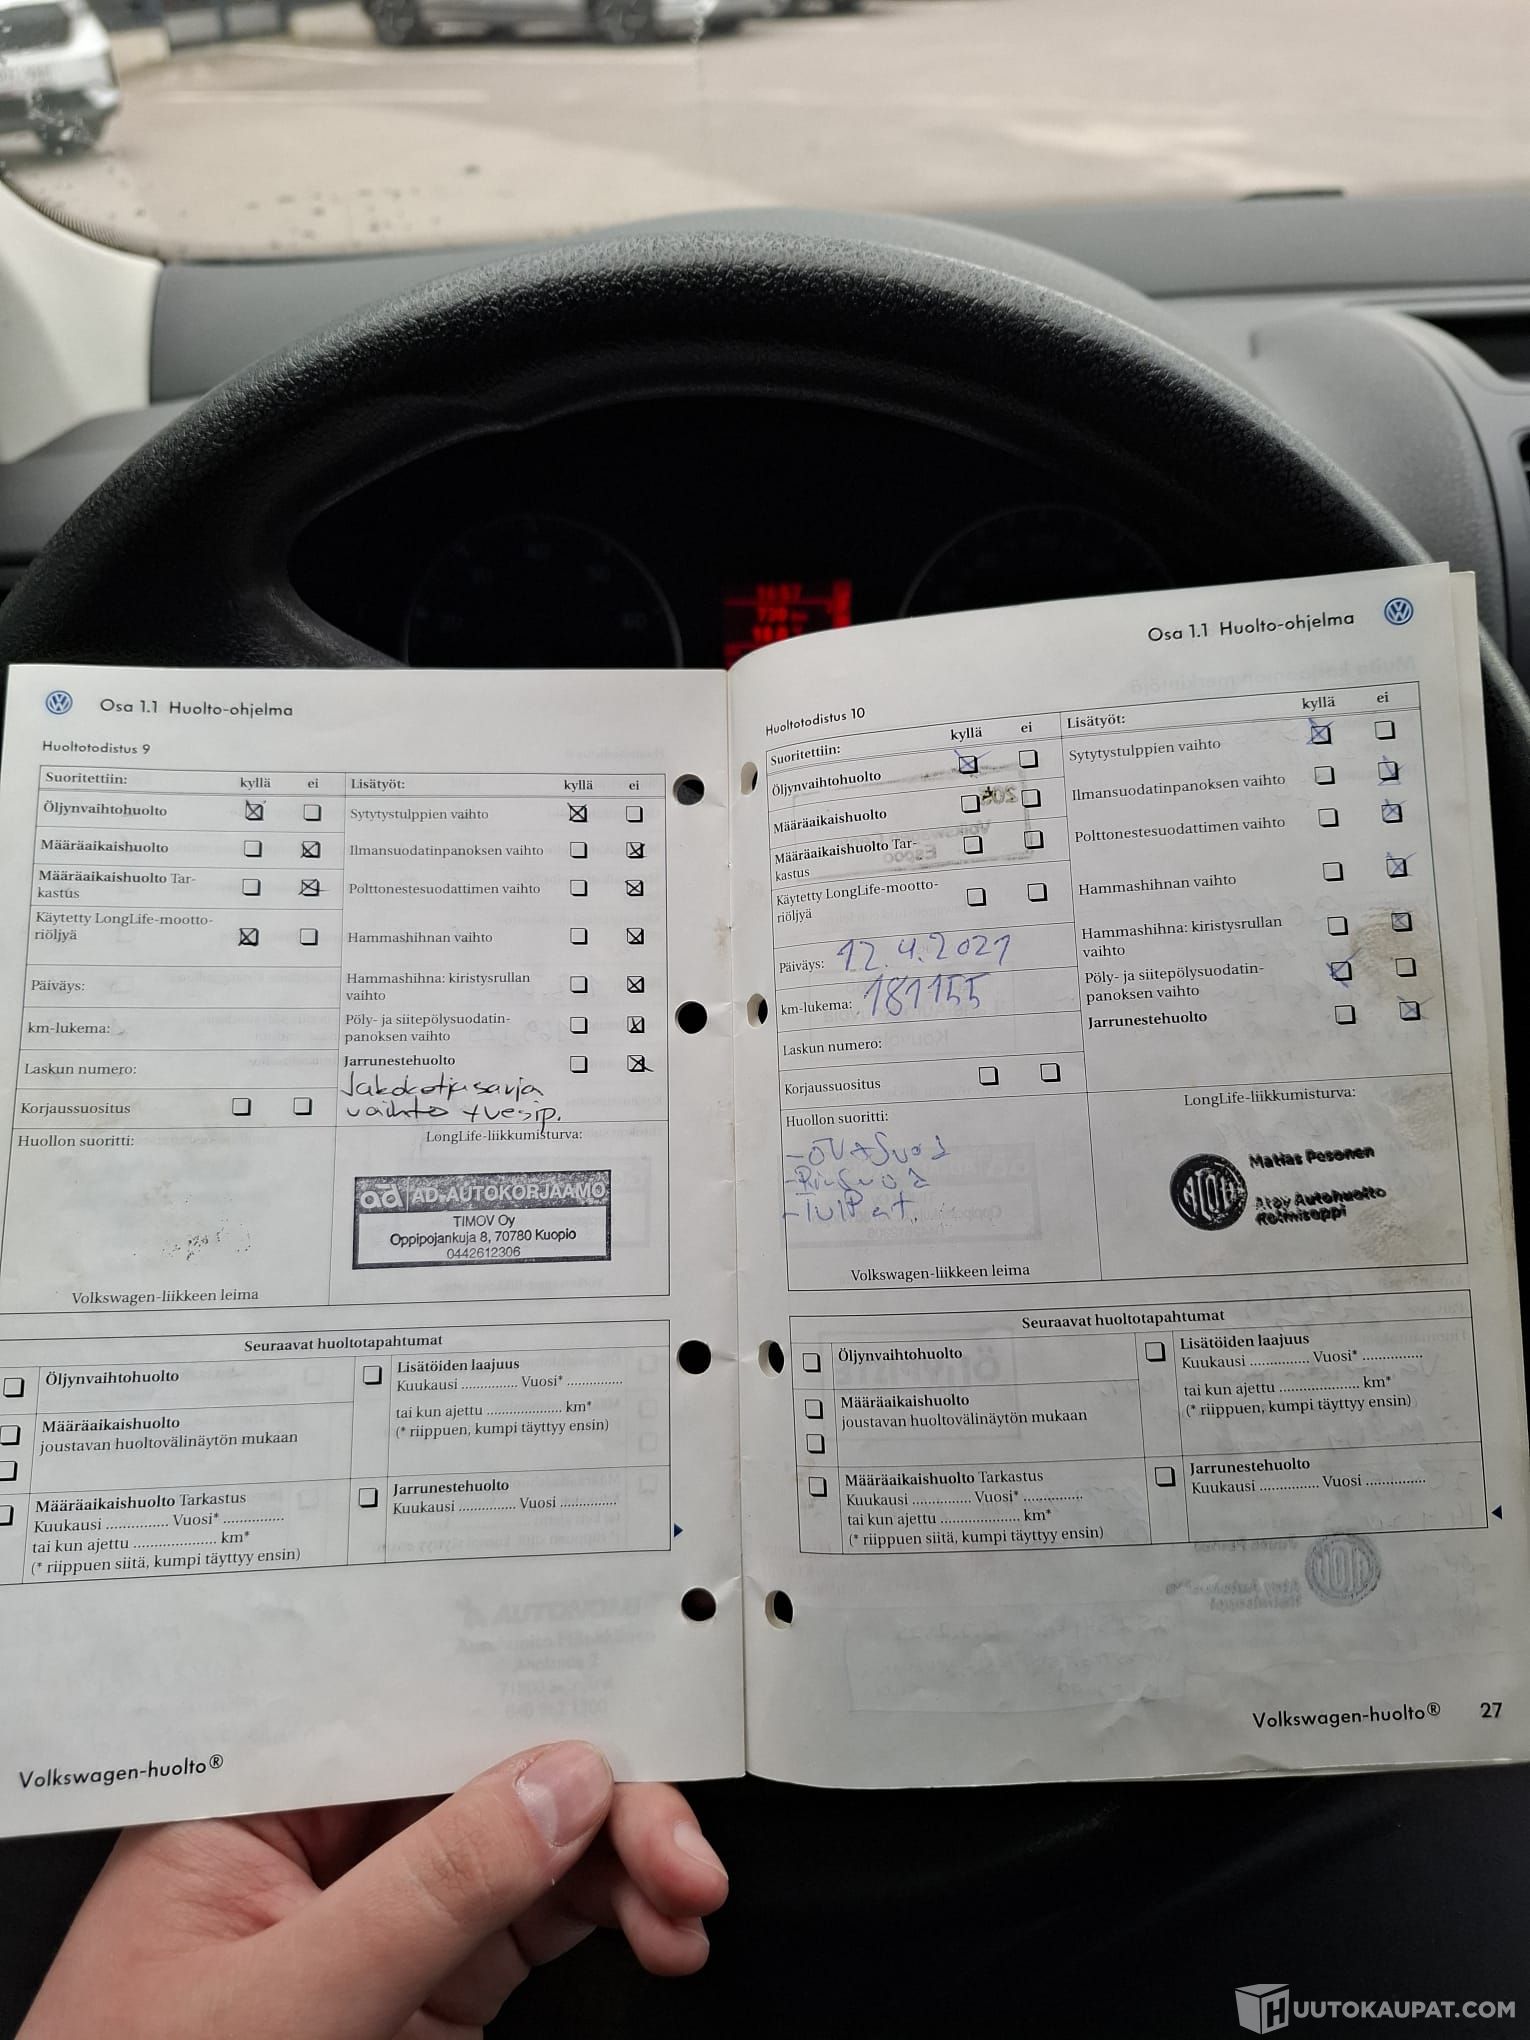 Osa 1.1 Huolto-ohjelma
Huoltotodistus 9
Suoritettiin: kyllä ei Lisätyöt: kyllä ei
Öljynvaihtohuolto Sytytystulppien vaihto
Määräaikaishuolto Ilmansuodatinpanoksen vaihto
Määräaikaishuolto Tar-
kastus
Polttonestesuodattimen vaihto
Käytetty LongLife-mootto-
riöljyä
Hammashihnan vaihto
Päiväys:
Hammashihna: kiristysrullan
vaihto
km-lukema:
Pöly- ja siitepölysuodatin-
panoksen vaihto
Laskun numero:
Jarrunestehuolto
Jakoketjusarja
vaihto + vesip.
Korjaussuositus
Huollon suoritti:
LongLife-liikkumisturva:
ad AD-AUTOKORJAAMO
TIMOV Oy
Oppipojankuja 8, 70780 Kuopio
0442612306
Volkswagen-liikkeen leima
Seuraavat huoltotapahtumat
Öljynvaihtohuolto
Lisätöiden laajuus
Kuukausi ............... Vuosi* ...............
tai kun ajettu .................... km*
(* riippuen, kumpi täyttyy ensin)
Määräaikaishuolto
joustavan huoltovälinäytön mukaan
Määräaikaishuolto Tarkastus
Kuukausi ................ Vuosi* ................
tai kun ajettu .................... km*
(* riippuen siitä, kumpi täyttyy ensin)
Jarrunestehuolto
Kuukausi ............... Vuosi ...............
Volkswagen-huolto®
Osa 1.1 Huolto-ohjelma
Huoltotodistus 10
Suoritettiin: kyllä ei Lisätyöt: kyllä ei
Öljynvaihtohuolto Sytytystulppien vaihto
Määräaikaishuolto Ilmansuodatinpanoksen vaihto
Määräaikaishuolto Tar-
kastus
Polttonestesuodattimen vaihto
Käytetty LongLife-mootto-
riöljyä
Hammashihnan vaihto
Päiväys: 12.4.2021
Hammashihna: kiristysrullan
vaihto
km-lukema: 181155
Pöly- ja siitepölysuodatin-
panoksen vaihto
Laskun numero:
Jarrunestehuolto
Korjaussuositus
Huollon suoritti:
LongLife-liikkumisturva:
Matias Pesonen
ATOY
Atoy Autohuolto
Kolmisoppi
Volkswagen-liikkeen leima
Seuraavat huoltotapahtumat
Öljynvaihtohuolto
Lisätöiden laajuus
Kuukausi ............... Vuosi* ...............
tai kun ajettu .................... km*
(* riippuen, kumpi täyttyy ensin)
Määräaikaishuolto
joustavan huoltovälinäytön mukaan
Määräaikaishuolto Tarkastus
Kuukausi ............... Vuosi* ...............
tai kun ajettu .................... km*
(* riippuen siitä, kumpi täyttyy ensin)
Jarrunestehuolto
Kuukausi ............... Vuosi ...............
Volkswagen-huolto® 27
HUUTOKAUPAT.COM